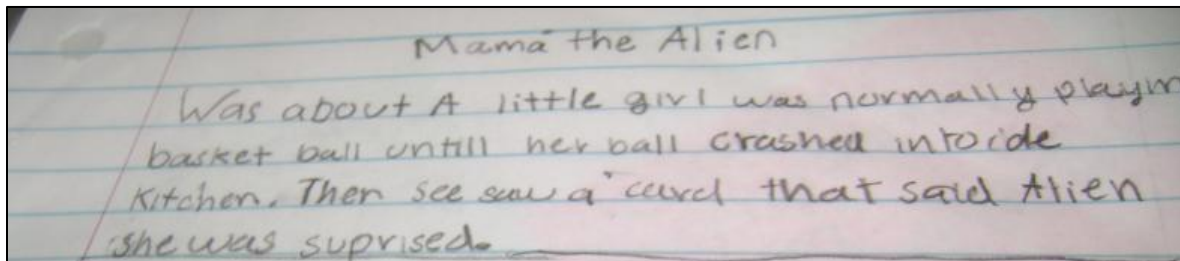 Mama the Alien
Was about A little girl was normally playin
basket ball untill her ball crashed into ide
Kitchen. Then see saw a card that said Alien
she was suprised.